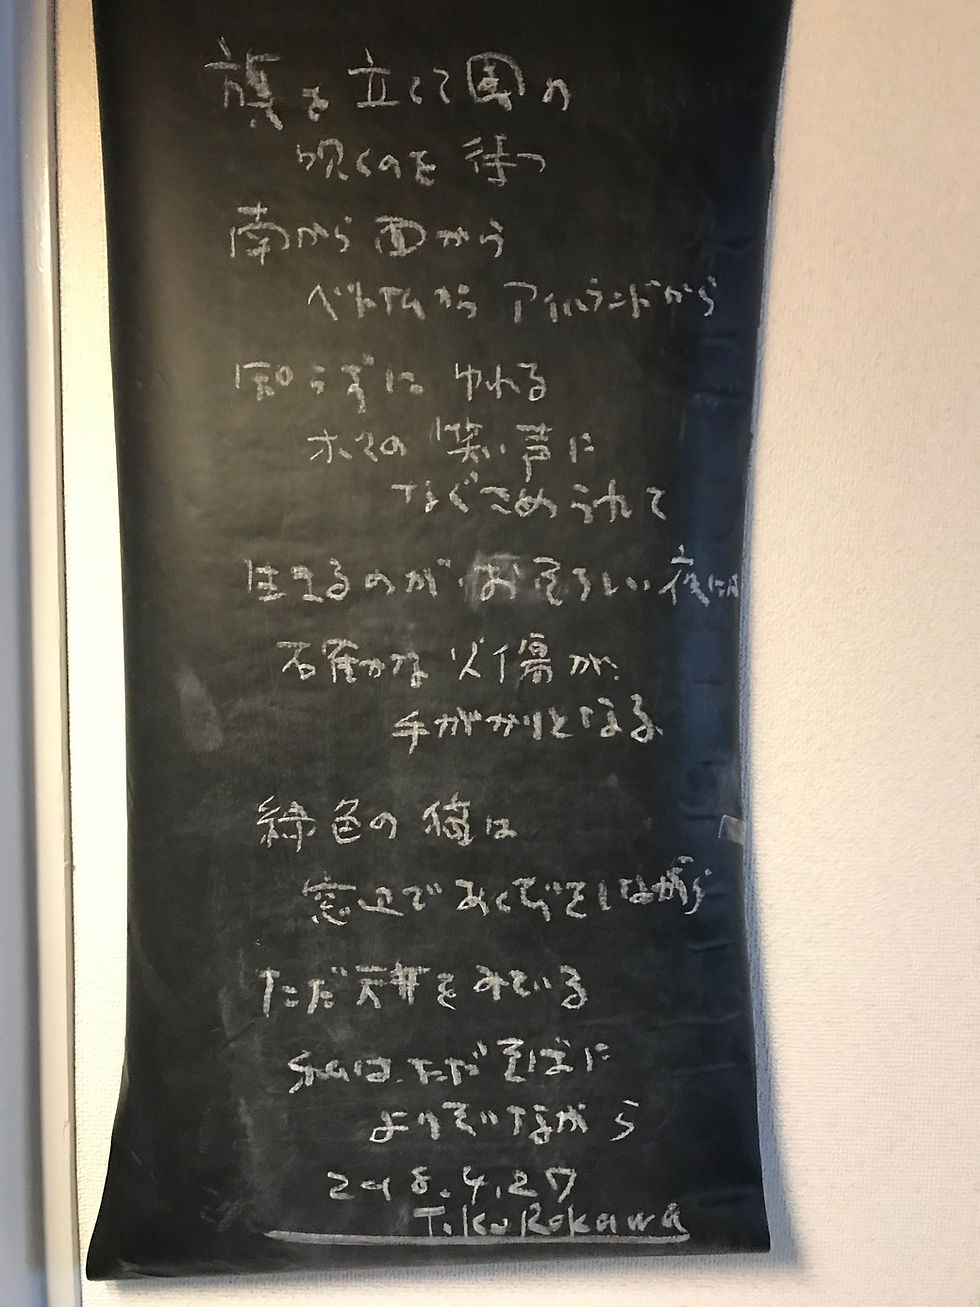 旗を立てて風の
吹くのを待つ
南から 西から
ベトナムから アイルランドから
知らずに ゆれる
木々の 笑い声に
なぐさめられて
生きるのが おそろしい夜には
確かな 火傷が
手がかりとなる
緑色の 猫は
窓辺で あくびをしながら
ただ天井をみている
私は ただ そばに
よりそいながら
2018.4.27
T.KuRokawa